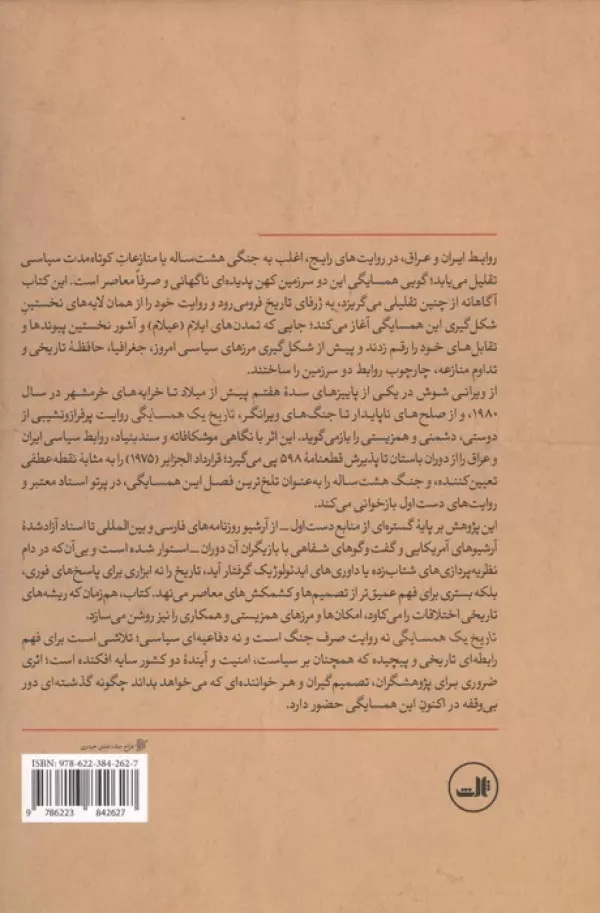 روابط ایران و عراق، در روایت‌های رایج، اغلب به جنگی هشت‌ساله یا منازعاتِ کوتاه‌مدت سیاسی
تقلیل می‌یابد؛ گویی همسایگی این دو سرزمین کهن پدیده‌ای ناگهانی و صرفاً معاصر است. این کتاب
آگاهانه از چنین تقلیلی می‌گریزد، به ژرفای تاریخ فرومی‌رود و روایت خود را از همان لایه‌های نخستینِ
شکل‌گیری این همسایگی آغاز می‌کند؛ جایی که تمدن‌های ایلام (عیلام) و آشور نخستین پیوندها و
تقابل‌های خود را رقم زدند و پیش از شکل‌گیری مرزهای سیاسی امروز، جغرافیا، حافظهٔ تاریخی و
تداوم منازعه، چارچوب روابط دو سرزمین را ساختند.
از ویرانی شوش در یکی از پاییزهای سدهٔ هفتم پیش از میلاد تا خرابه‌های خرمشهر در سال
۱۹۸۰، و از صلح‌های ناپایدار تا جنگ‌های ویرانگر، تاریخ یک همسایگی روایت پرفرازونشیبی از
دوستی، دشمنی و همزیستی را بازمی‌گوید. این اثر با نگاهی موشکافانه و سندبنیاد، روابط سیاسی ایران
و عراق را از دوران باستان تا پذیرش قطعنامهٔ ۵۹۸ پی می‌گیرد؛ قرارداد الجزایر (۱۹۷۵) را به مثابهٔ نقطه‌عطفی
تعیین‌کننده، و جنگ هشت‌ساله را به‌عنوان تلخ‌ترین فصل این همسایگی، در پرتو اسناد معتبر و
روایت‌های دست‌اول بازخوانی می‌کند.
این پژوهش بر پایهٔ گستره‌ای از منابع دست‌اول ــ از آرشیو روزنامه‌های فارسی و بین‌المللی تا اسناد آزادشدهٔ
آرشیوهای آمریکایی و گفت‌وگوهای شفاهی با بازیگران آن دوران ــ استوار شده است و بی‌آن‌که در دام
نظریه‌پردازی‌های شتاب‌زده یا داوری‌های ایدئولوژیک گرفتار آید، تاریخ را نه ابزاری برای پاسخ‌های فوری،
بلکه بستری برای فهم عمیق‌تر از تصمیم‌ها و کشمکش‌های معاصر می‌نهد. کتاب، هم‌زمان که ریشه‌های
تاریخی اختلافات را می‌کاود، امکان‌ها و مرزهای همزیستی و همکاری را نیز روشن می‌سازد.
تاریخ یک همسایگی نه روایت صرف جنگ است و نه دفاعیه‌ای سیاسی؛ تلاشی است برای فهم
رابطه‌ای تاریخی و پیچیده که همچنان بر سیاست، امنیت و آیندهٔ دو کشور سایه افکنده است؛ اثری
ضروری برای پژوهشگران، تصمیم‌گیران و هر خواننده‌ای که می‌خواهد بداند چگونه گذشته‌ای دور
بی‌وقفه در اکنونِ این همسایگی حضور دارد.
طراح جلد: مهدی حیدری
ISBN: 978-622-384-262-7
9 786223 842627
ثالث